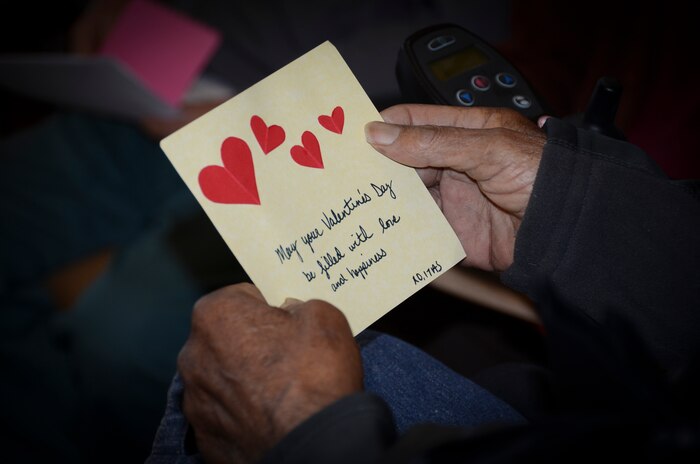 May your Valentin's Day
be filled with love
and happiness